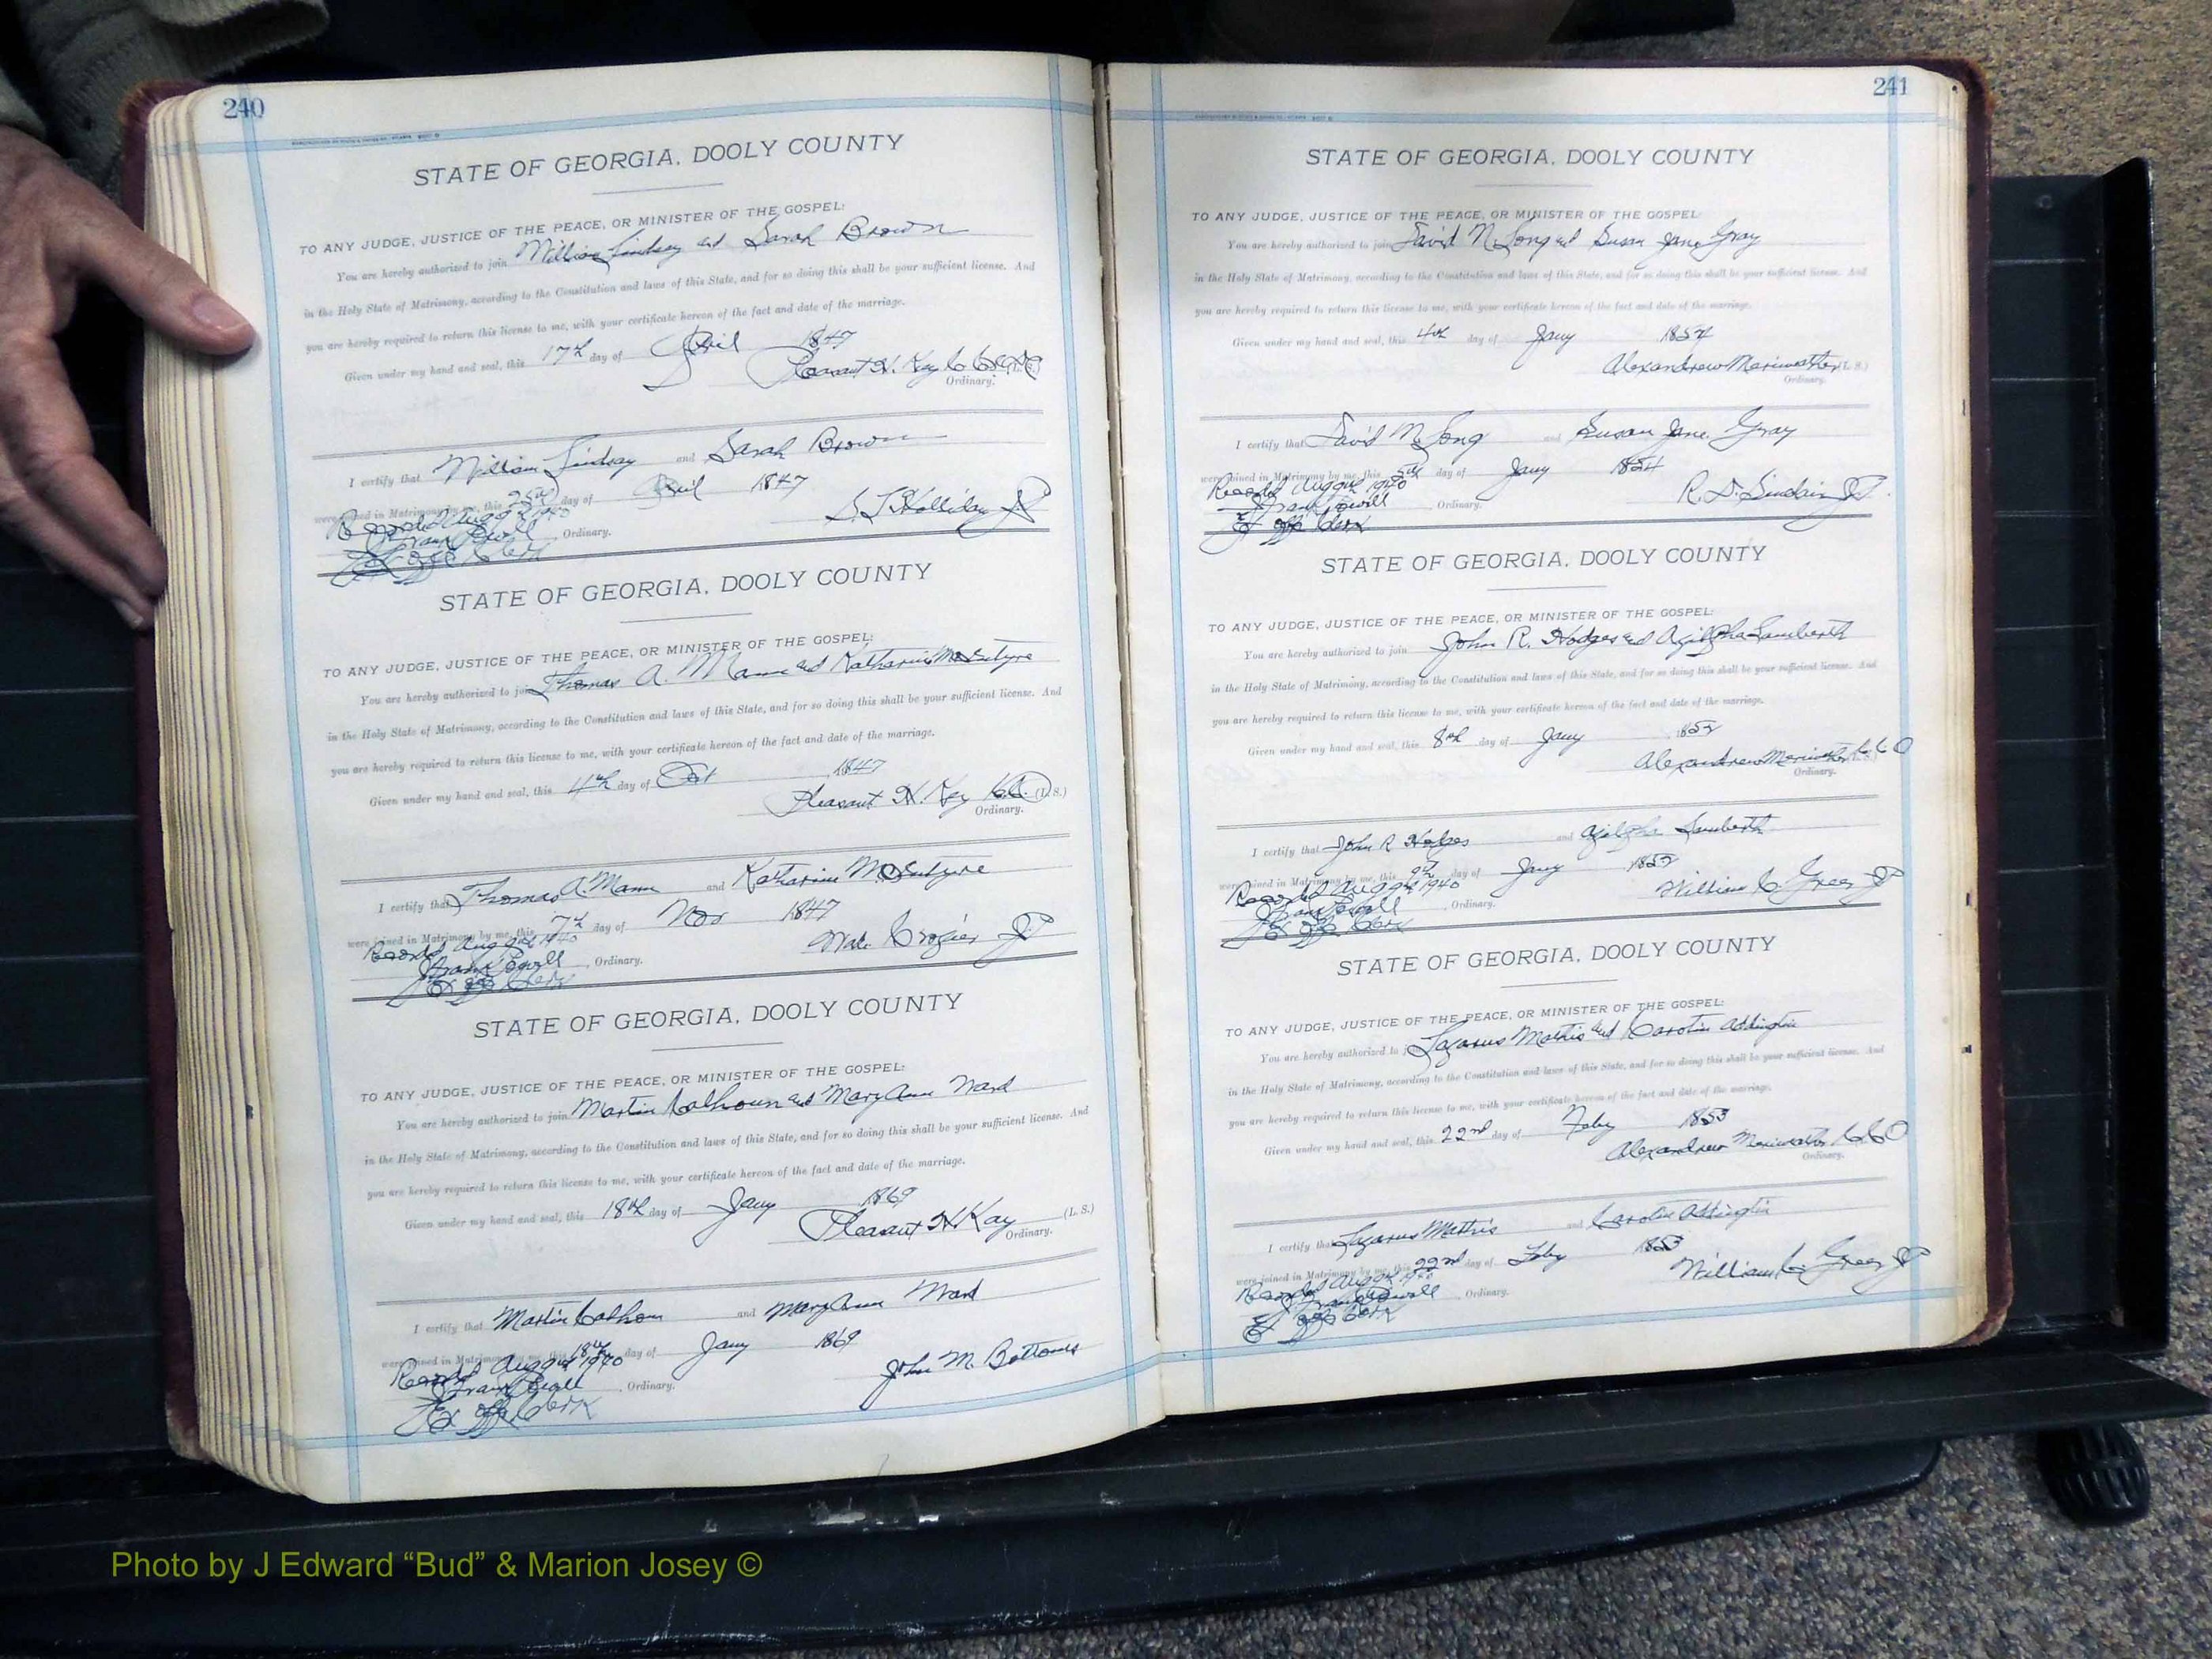 240
STATE OF GEORGIA, DOOLY COUNTY
TO ANY JUDGE, JUSTICE OF THE PEACE, OR MINISTER OF THE GOSPEL:
You are hereby authorized to join William Lindsay and Sarah Brown
in the Holy State of Matrimony, according to the Constitution and laws of this State, and for so doing this shall be your sufficient license. And
you are hereby required to return this license to me, with your certificate hereon of the fact and date of the marriage.
Given under my hand and seal, this 17th day of April 1847
Pleasant H. Key
Ordinary.
I certify that William Lindsay and Sarah Brown
were joined in Matrimony by me, this 25th day of April 1847
S. J. Holliday JP
Recorded Aug 1940
Ordinary.
Ex off Clerk
STATE OF GEORGIA, DOOLY COUNTY
TO ANY JUDGE, JUSTICE OF THE PEACE, OR MINISTER OF THE GOSPEL:
You are hereby authorized to join Thomas A. Mann and Katharine McIntyre
in the Holy State of Matrimony, according to the Constitution and laws of this State, and for so doing this shall be your sufficient license. And
you are hereby required to return this license to me, with your certificate hereon of the fact and date of the marriage.
Given under my hand and seal, this 4th day of Oct 1847
Pleasant H. Key (L. S.)
Ordinary.
I certify that Thomas A. Mann and Katharine McIntyre
were joined in Matrimony by me, this 7th day of Nov 1847
Crozier JP
Recorded Aug 1940
Ordinary.
Ex off Clerk
STATE OF GEORGIA, DOOLY COUNTY
TO ANY JUDGE, JUSTICE OF THE PEACE, OR MINISTER OF THE GOSPEL:
You are hereby authorized to join Martin Calhoun and Mary Ann Ward
in the Holy State of Matrimony, according to the Constitution and laws of this State, and for so doing this shall be your sufficient license. And
you are hereby required to return this license to me, with your certificate hereon of the fact and date of the marriage.
Given under my hand and seal, this 18th day of Jany 1869
Pleasant H. Kay (L. S.)
Ordinary.
I certify that Martin Calhoun and Mary Ann Ward
were joined in Matrimony by me, this 18th day of Jany 1869
John M. Bottoms
Recorded Aug 1940
Ordinary.
Ex off Clerk
241
STATE OF GEORGIA, DOOLY COUNTY
TO ANY JUDGE, JUSTICE OF THE PEACE, OR MINISTER OF THE GOSPEL:
You are hereby authorized to join David N. Long and Susan Jane Gray
in the Holy State of Matrimony, according to the Constitution and laws of this State, and for so doing this shall be your sufficient license. And
you are hereby required to return this license to me, with your certificate hereon of the fact and date of the marriage.
Given under my hand and seal, this 4th day of Jany 1854
Alexandrew Meriwether (L. S.)
Ordinary.
I certify that David N. Long and Susan Jane Gray
were joined in Matrimony by me, this 5th day of Jany 1854
R. D. Sinclair JP
Recorded Aug 1940
Ordinary.
Ex off Clerk
STATE OF GEORGIA, DOOLY COUNTY
TO ANY JUDGE, JUSTICE OF THE PEACE, OR MINISTER OF THE GOSPEL:
You are hereby authorized to join John R. Hodges and Lamberth
in the Holy State of Matrimony, according to the Constitution and laws of this State, and for so doing this shall be your sufficient license. And
you are hereby required to return this license to me, with your certificate hereon of the fact and date of the marriage.
Given under my hand and seal, this 8th day of Jany 1852
Alexandrew Meriwether C.C.O
Ordinary.
I certify that John R Hodges and Lamberth
were joined in Matrimony by me, this 9th day of Jany 1852
William C. Greer JP
Recorded Aug 1940
Ordinary.
Ex off Clerk
STATE OF GEORGIA, DOOLY COUNTY
TO ANY JUDGE, JUSTICE OF THE PEACE, OR MINISTER OF THE GOSPEL:
You are hereby authorized to join Lazarus Mathis and Carolin Addington
in the Holy State of Matrimony, according to the Constitution and laws of this State, and for so doing this shall be your sufficient license. And
you are hereby required to return this license to me, with your certificate hereon of the fact and date of the marriage.
Given under my hand and seal, this 22nd day of Feby 1853
Alexandrew Meriwether C.C.O
Ordinary.
I certify that Lazarus Mathis and Carolin Addington
were joined in Matrimony by me, this 22nd day of Feby 1853
William C. Greer JP
Recorded Aug 1940
Ordinary.
Ex off Clerk
Photo by J Edward “Bud” & Marion Josey ©